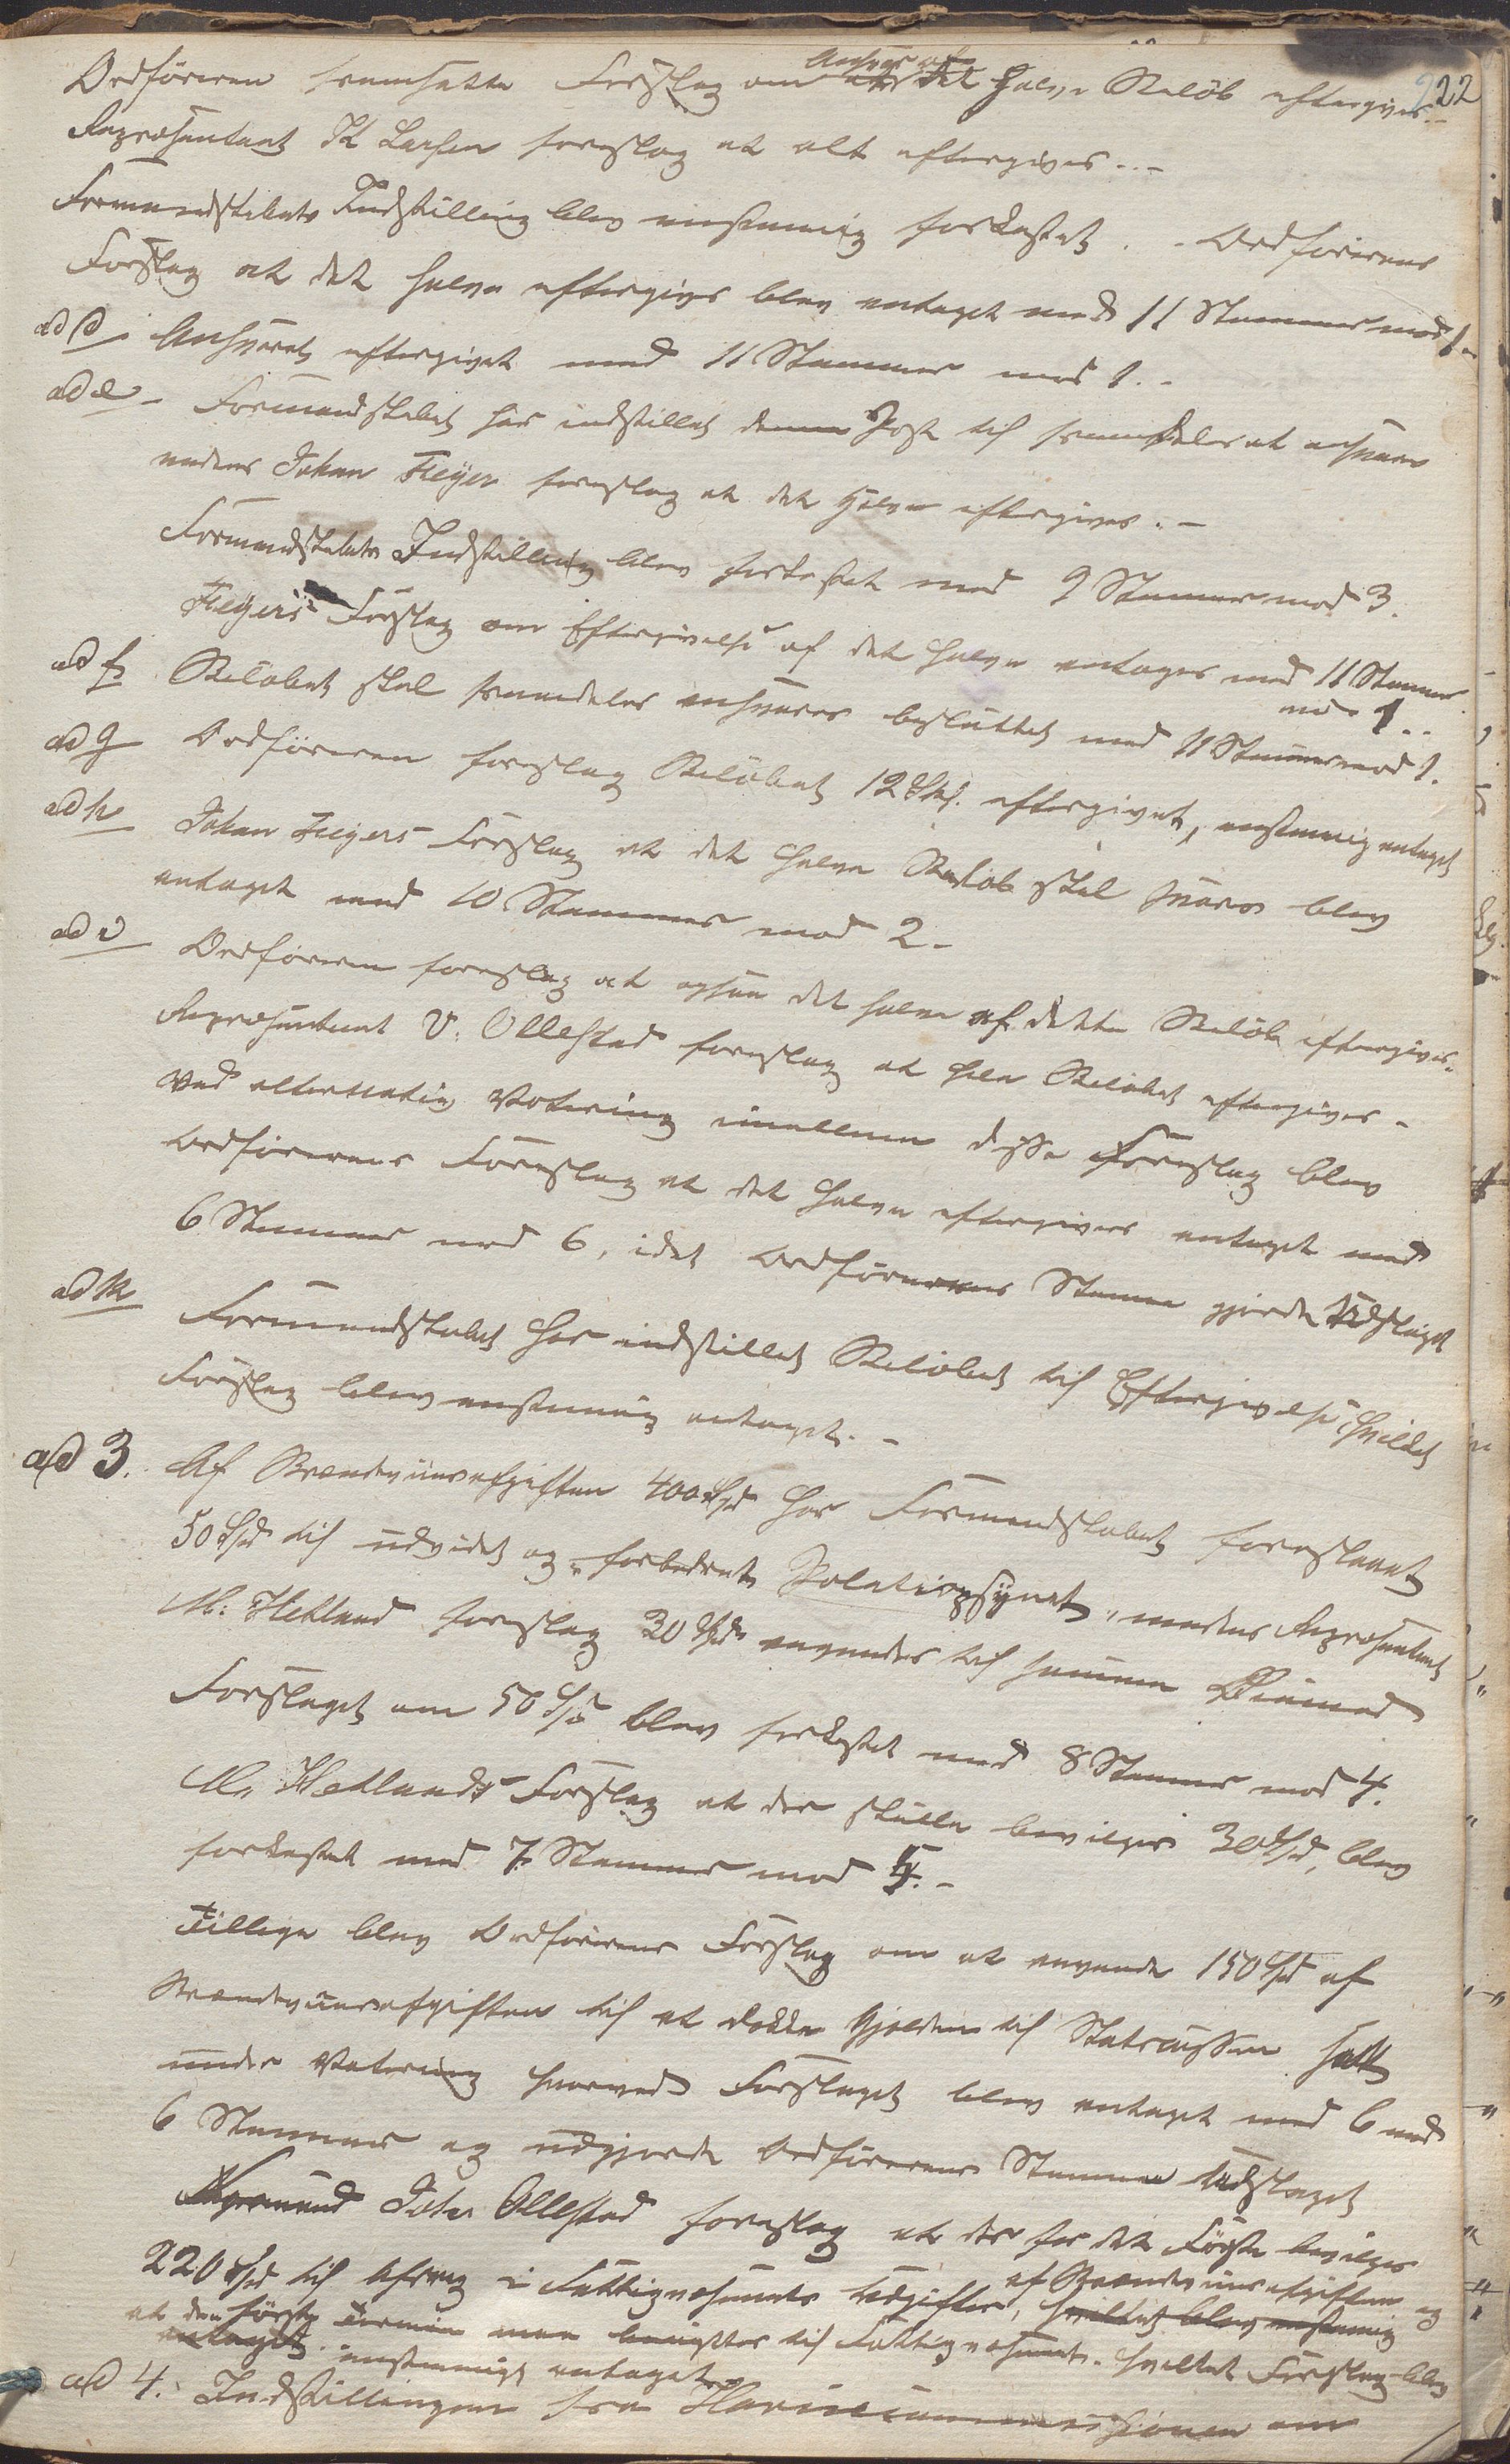 222
Ordføreren fremsatte Forslag om at det halve Beløb eftergives.-
Repræsentant K Larsen foreslog at alt eftergives.. -
Formandskabets Indstilling blev enstemmig forkastet. - Ordførerens
Forslag at det halve eftergives blev antaget med 11 Stemmer mod 1 -
ad d. Ansvaret eftergivet med 11 Stemmer mod 1. -
ad e - Formandskabet har indstillet denne Post til fremdeles at ansvares
medens Johan Feyer foreslog at det halve eftergives. -
Formandskabets Indstilling blev forkastet med 9 Stemmer mod 3.
Feyers Forslag om Eftergivelse af det halve antoges med 11 Stemmer
mod 1..
ad f Beløbet skal fremdeles ansvares besluttet med 11 Stemmer mod 1.
ad g Ordføreren foreslog Beløbet 12 Sk. eftergivet, enstemmig antaget
ad h Johan Feyers Forslag at det halve Beløb skal svares blev
antaget med 10 Stemmer mod 2 -
ad i Ordføreren foreslog at ogsaa det halve af dette Beløb eftergives.
Repræsentant V. Ollestad foreslog at hele Beløbet eftergives -
Ved alternativ Votering imellem disse Foreslag blev
Ordførerens Foreslag at det halve eftergives antaget med
6 Stemmer mod 6, idet Ordførerens Stemme gjorde Udslaget
ad k Formandskabet har indstillet Beløbet til Eftergivelse, hvilket
Forslag blev enstemmig antaget. -
ad 3. Af Brændeviinsafgiften 400 Spd har Formandskabet foreslaaet
50 Spd til udvidet og forbedret Politiopsynet, medens Repræsentant
M. Hetland foreslog 30 Spd anvendes til samme Øiemed
Forslaget om 50 Spd blev forkastet med 8 Stemmer mod 4.
M. Hetlands Forslag at der skulle bevilges 30 Spd, blev
forkastet med 7 Stemmer mod 5. -
Tillige blev Ordførerens Forslag om at anvende 150 Spd af
Brændeviinsafgiften til at dække Gjælden til Statscassen sat
under Votering hvorved Forslaget blev antaget med 6 mod
6 Stemmer og udgjorde Ordførerens Stemme Udslaget
John Ollestad foreslog at der for det Første bevilges
af Brændeviinsafgiften og
220 Spd til Afdrag i Fattigvæsenets Udgifter, hvilket blev enstemmig
at den første Termin maa benyttes til Fattigvæsenet. hvilket Forslag blev
antaget. enstemmigt antaget
ad 4. Indstillingen fra Havnecommissionen om